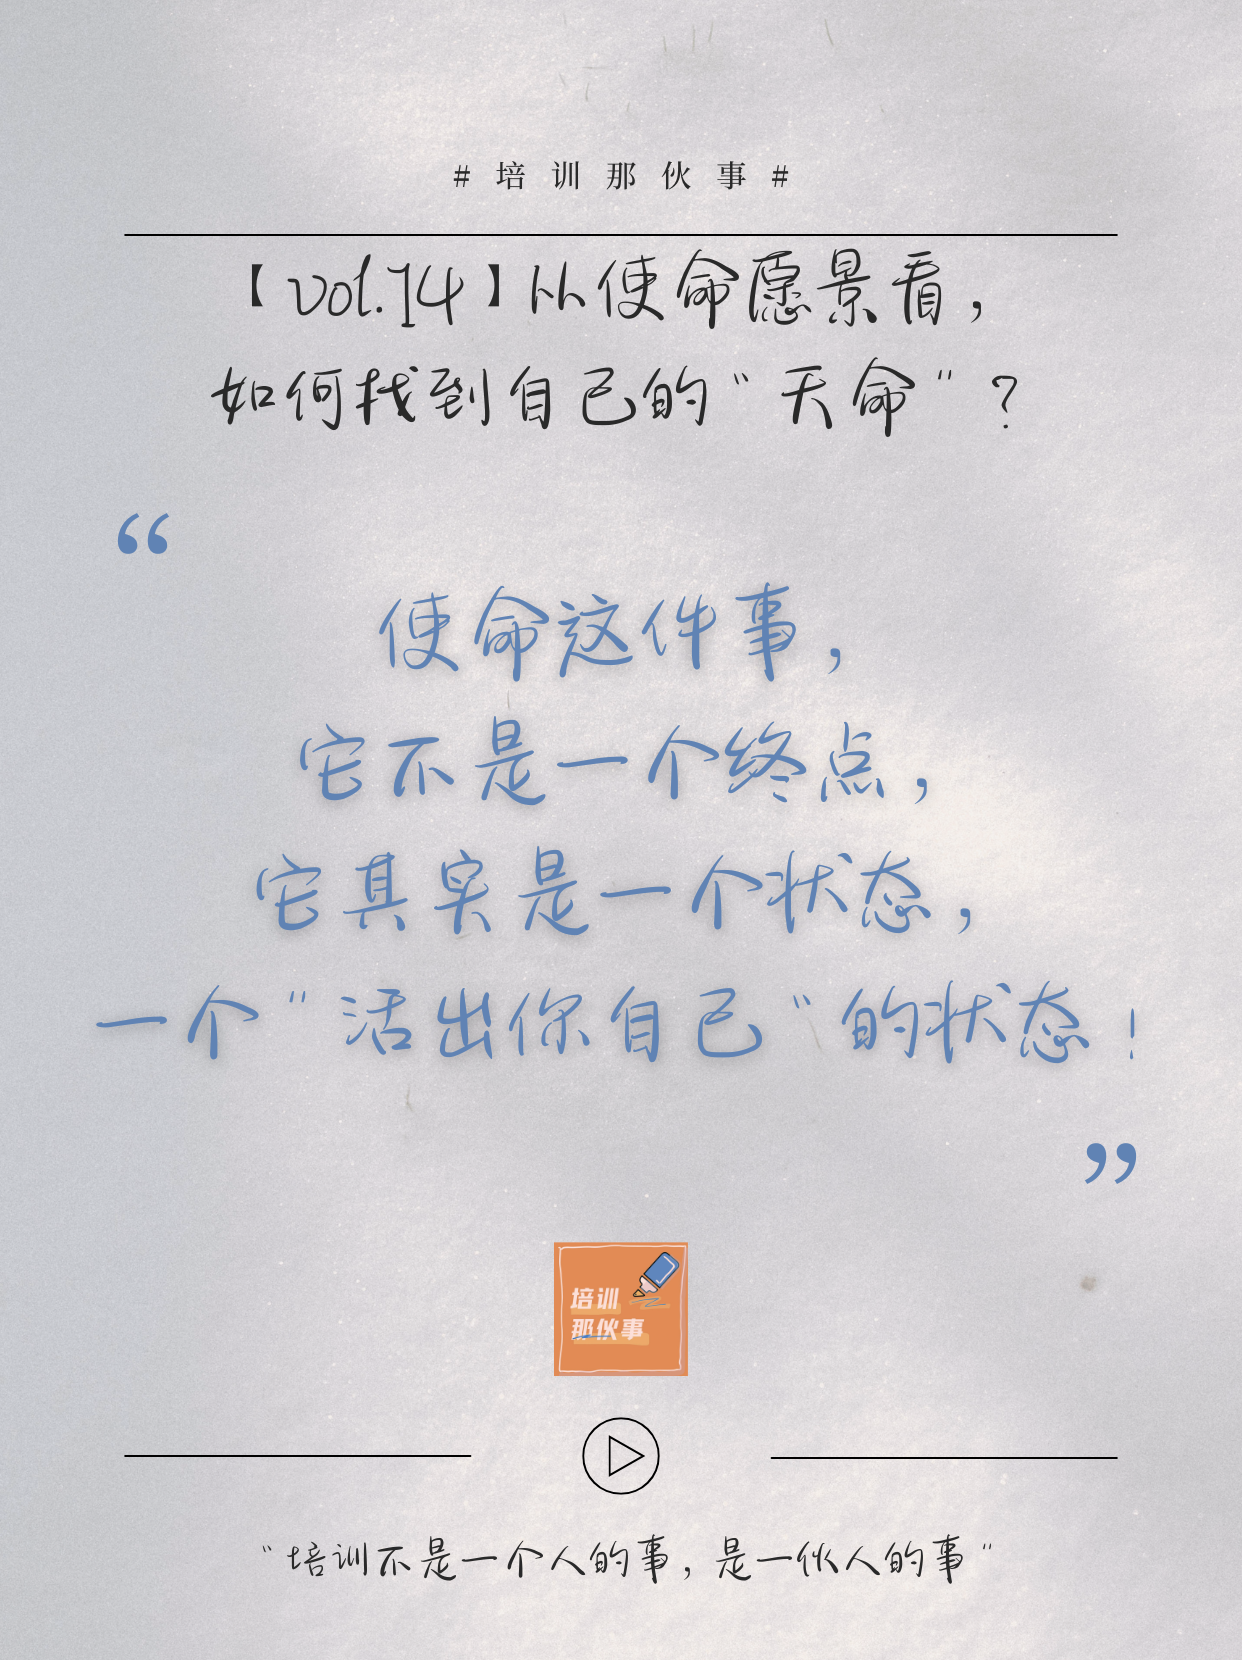 #培训那伙事#
【vol.14】从使命愿景看，
如何找到自己的“天命”？
“
使命这件事，
它不是一个终点，
它其实是一个状态，
一个“活出你自己“的状态！
”
培训
那伙事
“培训不是一个人的事，是一伙人的事“